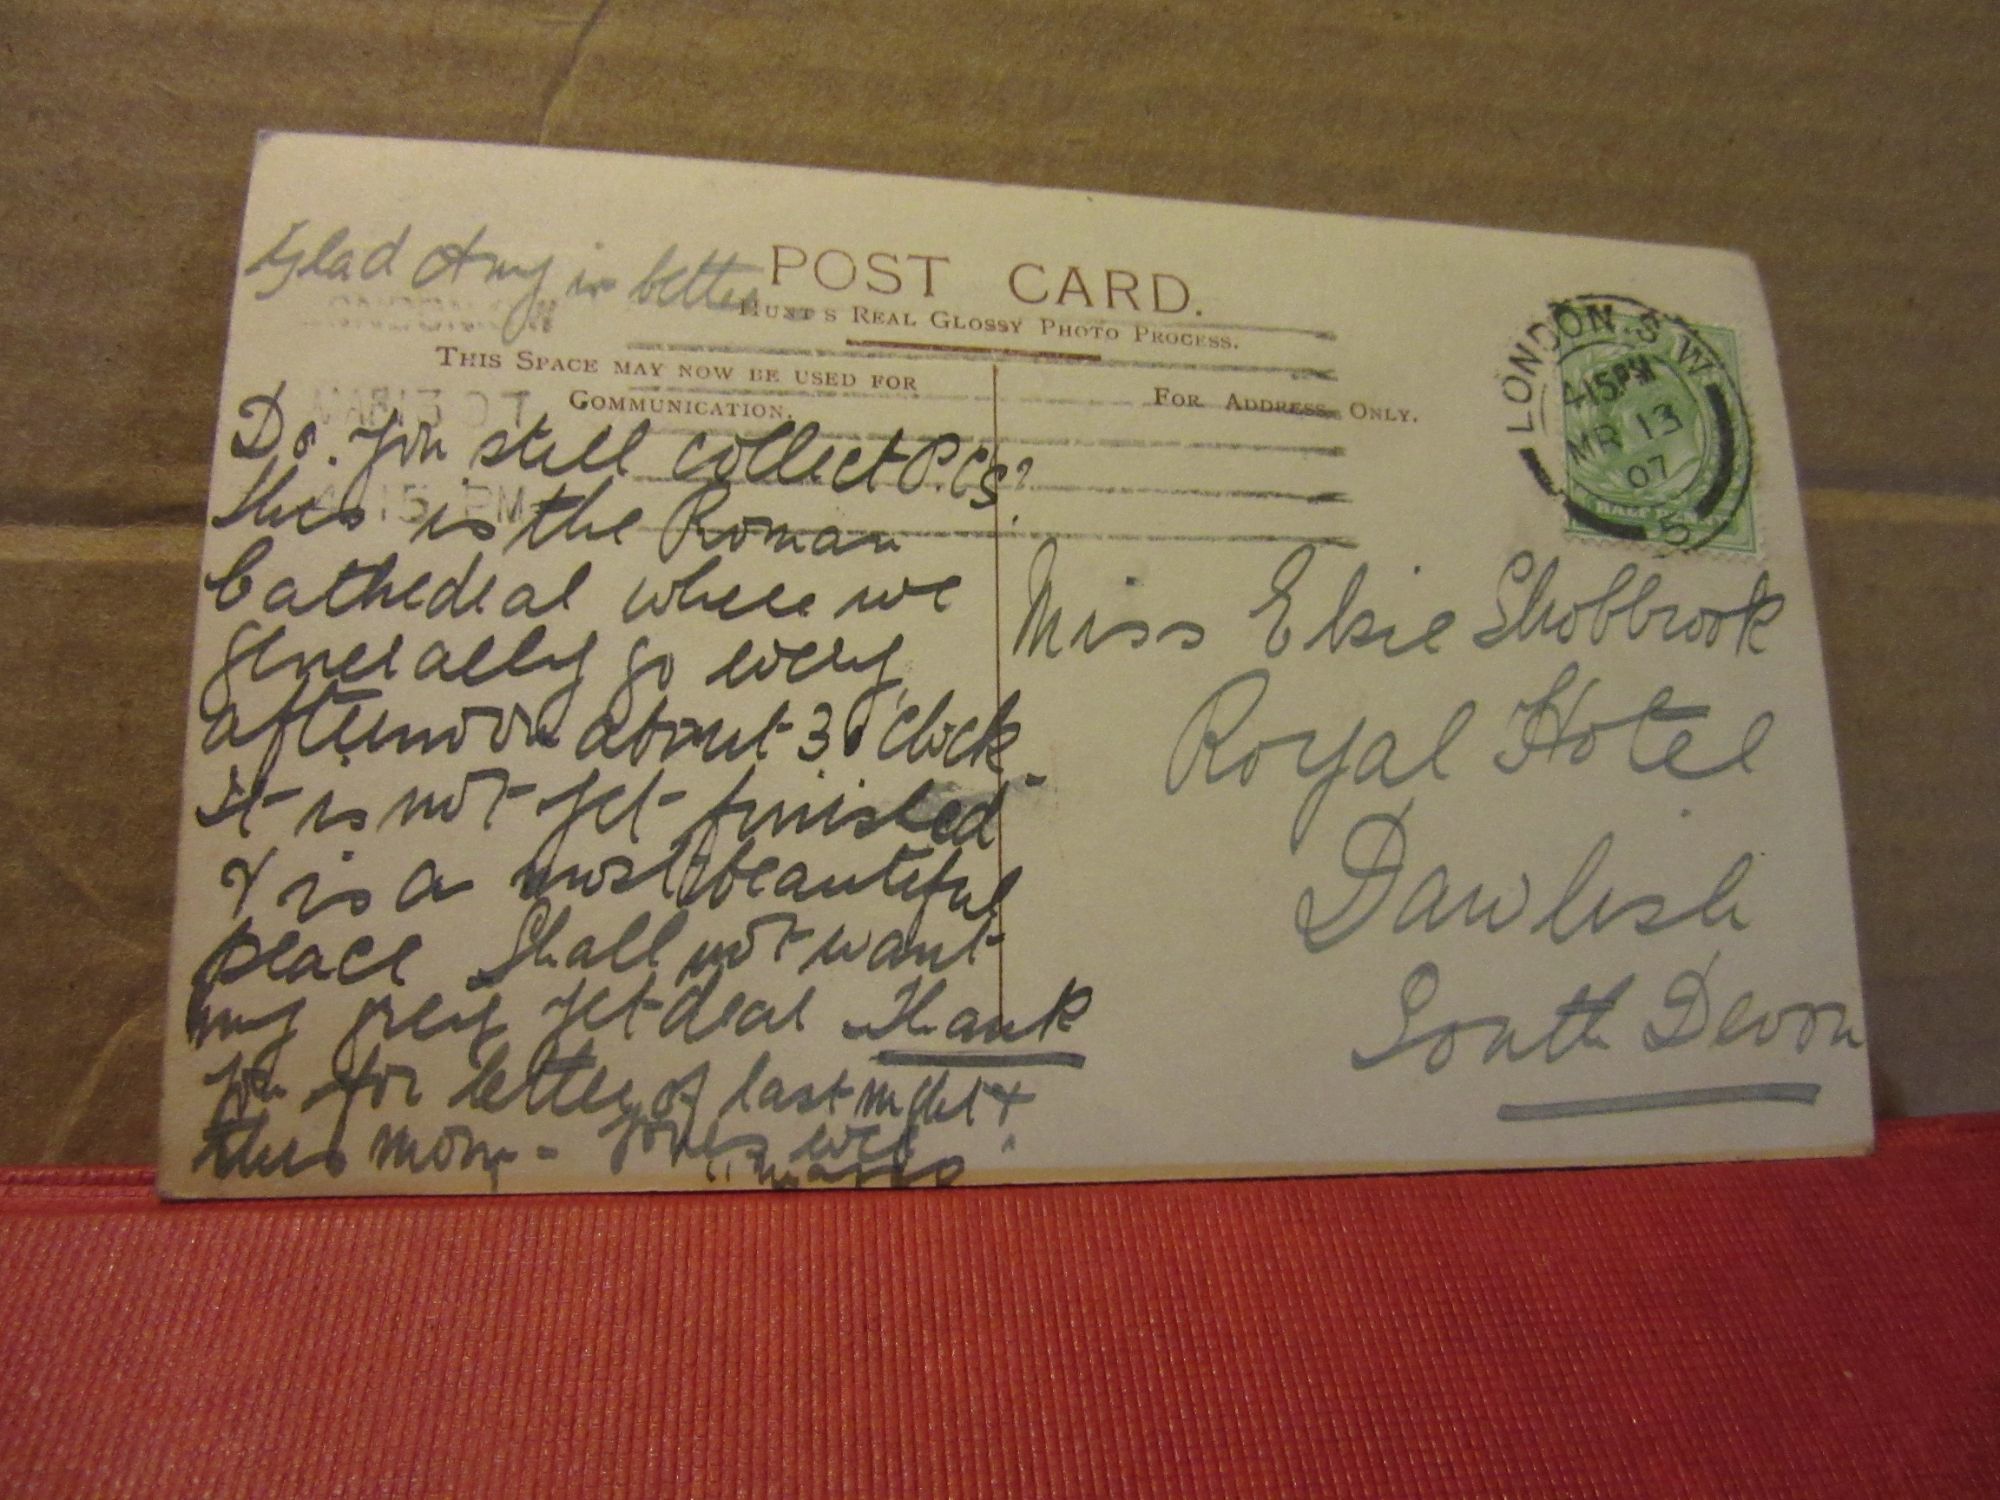 Glad Amy is better
POST CARD.
HUNT'S REAL GLOSSY PHOTO PROCESS.
THIS SPACE MAY NOW BE USED FOR
COMMUNICATION.
FOR ADDRESS ONLY.
LONDON. S.W.
4.15 PM
MR 13
07
5
HALF PENNY
Do you still collect P.Cs?
this is the Roman
Cathedral where we
generally go every
afternoon about 3 o'clock
it is not yet finished
& is a most beautiful
place Shall not want
my grey yet dear Thank
you for letter of last night &
this morn - yours ever
Miss Elsie Shobbrook
Royal Hotel
Dawlish
South Devon